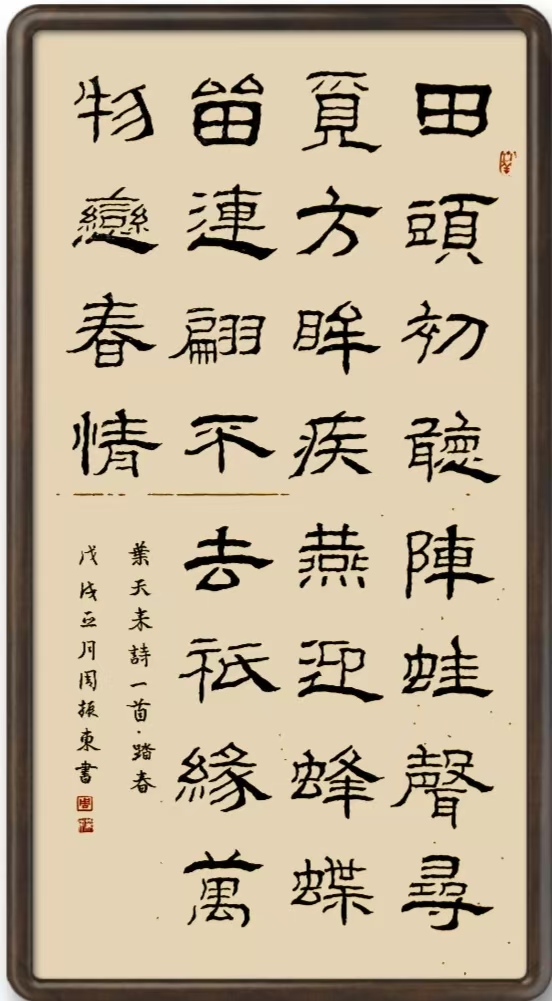 田頭初聽陣蛙聲尋
覓方眸疾燕迎蜂蝶
留連翩不去祇緣萬
物變春情
葉天来詩一首·踏春
戊戌五月周振東書